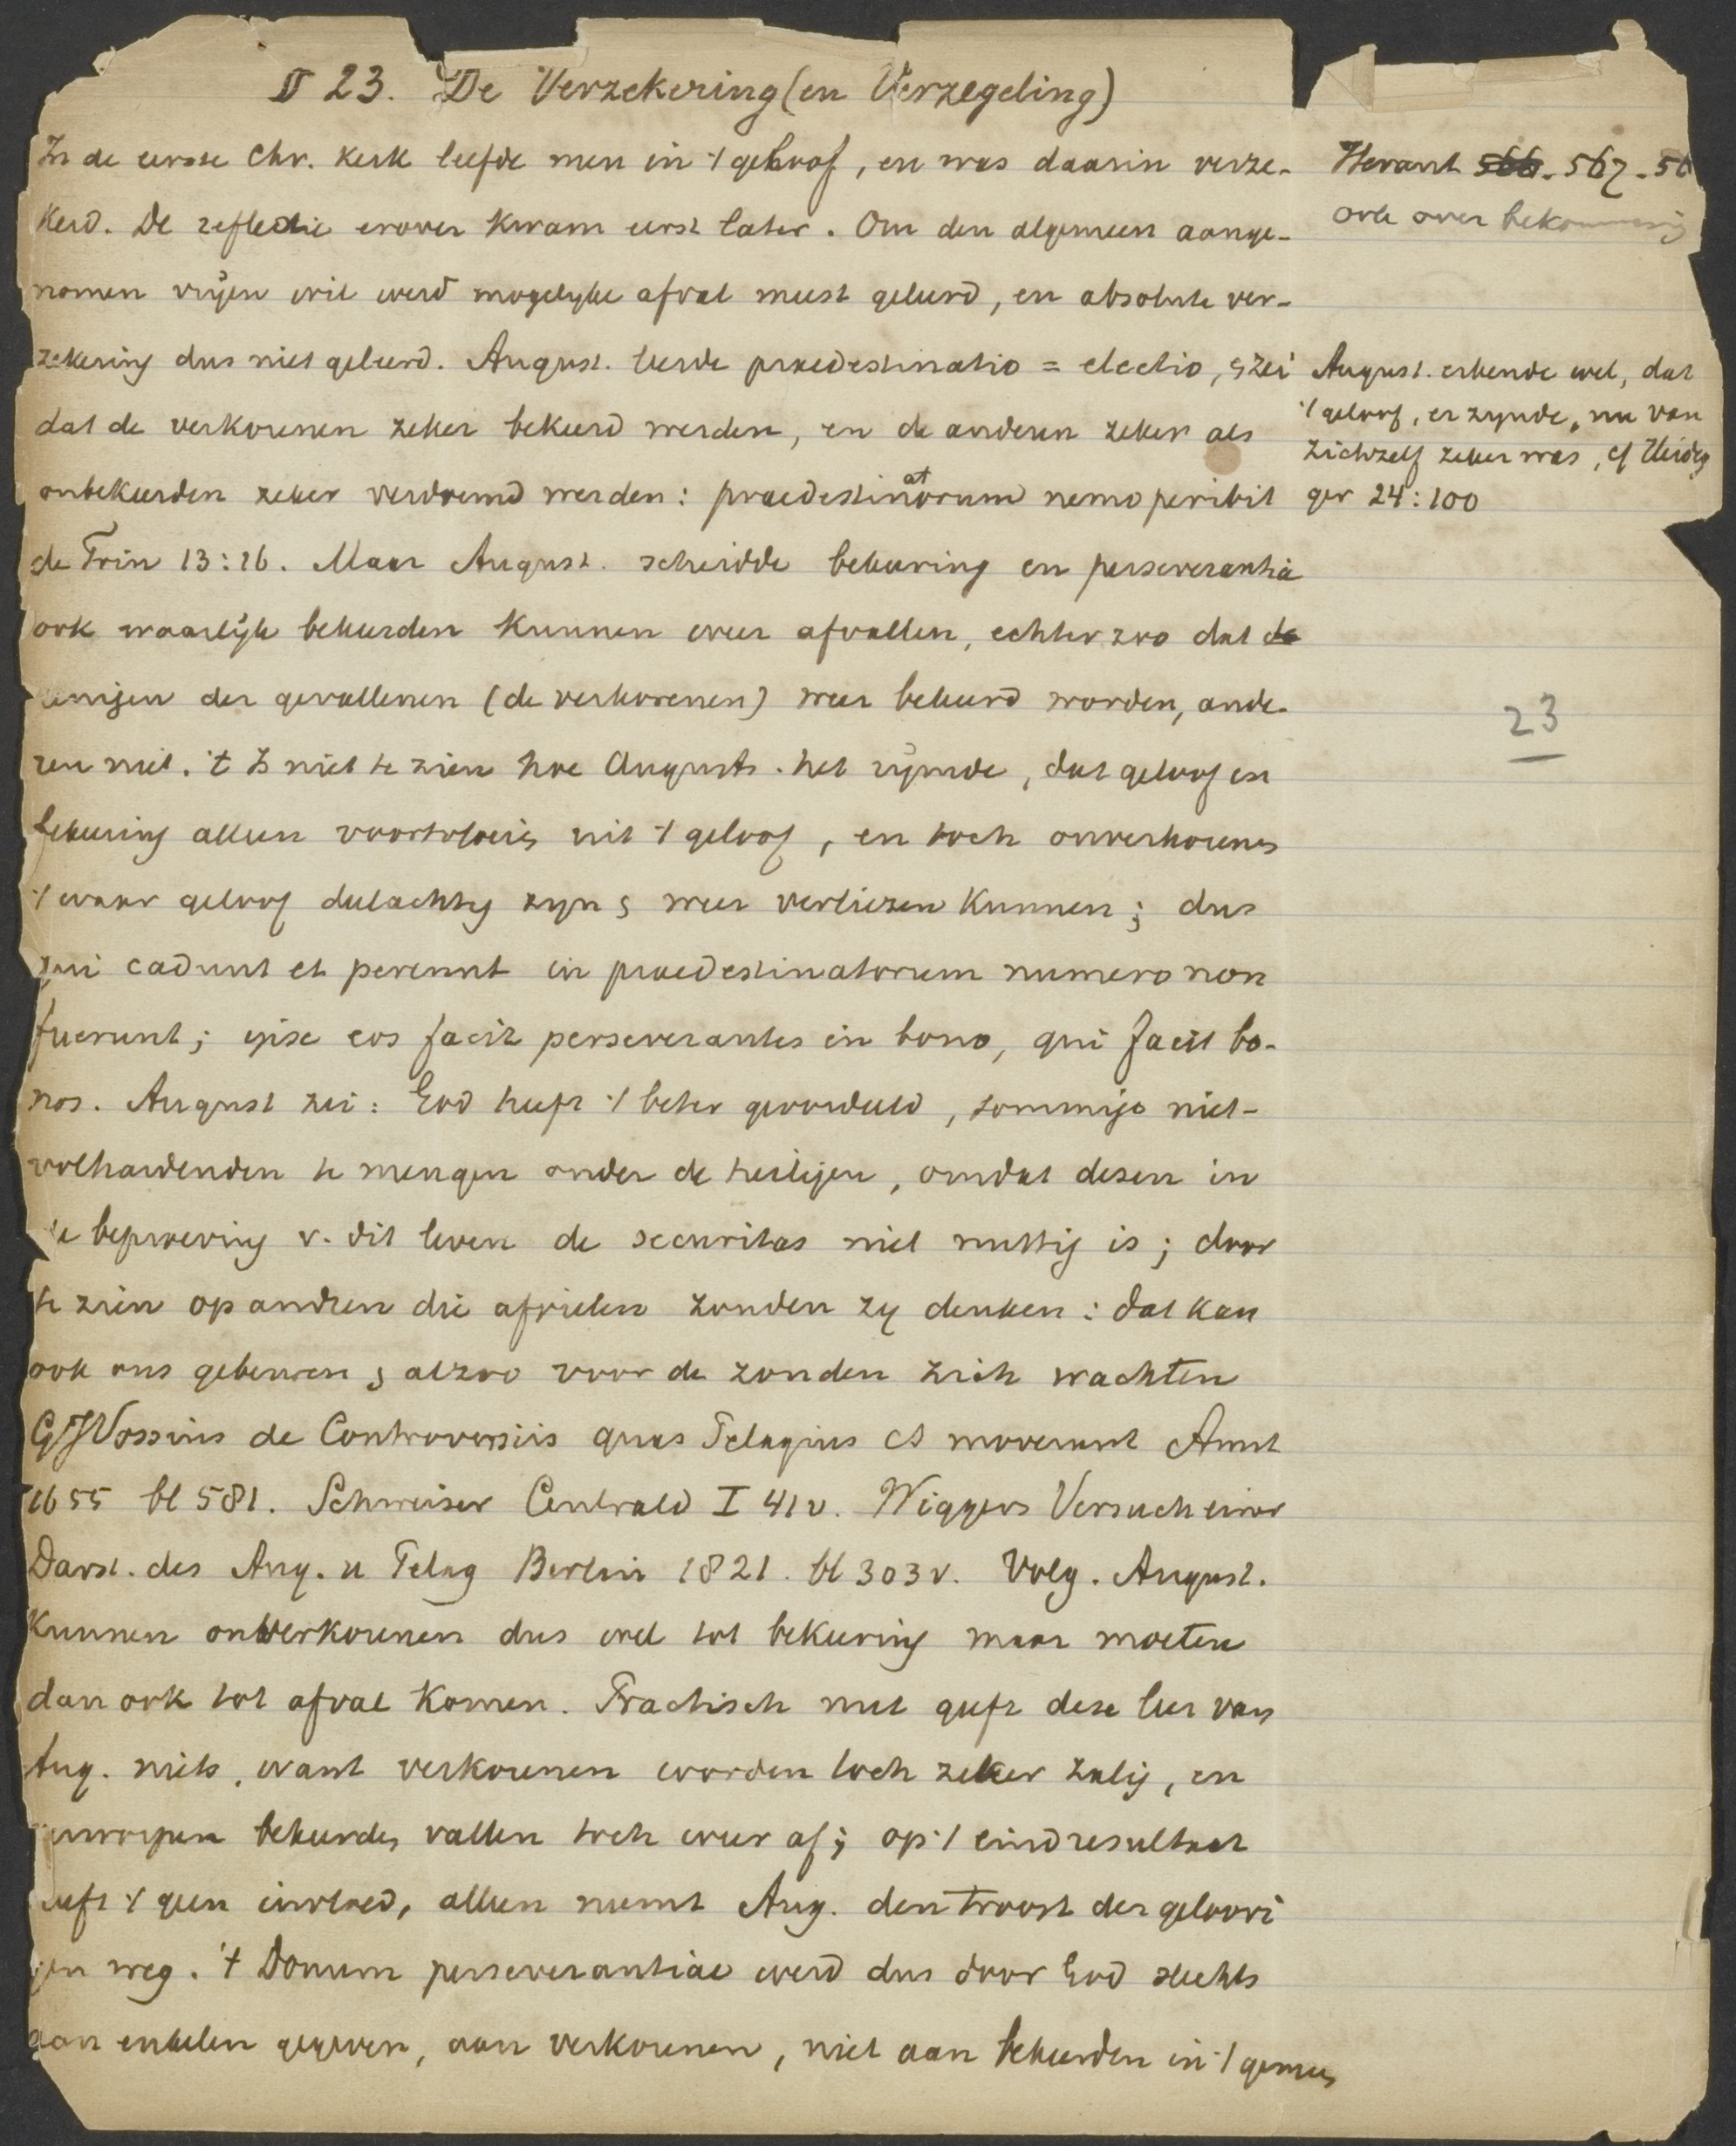 § 23. De Verzekering (en Verzegeling)
In de eerste Chr. Kerk leefde men in 't geloof, en was daarin verze-
kerd. De reflectie erover kwam eerst later. Om den algemeen aange-
nomen vrijen wil werd mogelyke afval meest geleerd, en absolute ver-
zekering dus niet geleerd. August. leerde praedestinatio = electio, & zei
dat de verkorenen zeker bekeerd werden, en de anderen zeker als
onbekeerden zeker verdoemd werden: praedestinatorum nemo peribit
de Trin 13:16. Maar August. scheidde bekeering en perseverantia
ook waarlijk bekeerden kunnen weer afvallen, echter zoo dat de
eenigen der gevallenen (de verkorenen) weer bekeerd worden, ande-
ren niet. 't Is niet te zien hoe Augusts. het rijmde, dat geloof en
bekeering alleen voortvloeit uit 't geloof, en toch onverkorenen
't waar geloof deelachtig zyn & weer verliezen kunnen; dus
qui cadunt et pereunt in praedestinatorum numero non
fuerunt; ipse eos facit perseverantes in bono, qui facit bo-
nos. August zei: God heeft 't beter geoordeeld, sommige niet-
volhardenden te mengen onder de heiligen, omdat dezen in
de beproeving v. dit leven de securitas niet nuttig is; door
te zien op andren die afvielen zouden zy denken: dat kan
ook ons gebeuren & alzoo voor de zonden zich wachten
GJVossius de Controversiis quas Pelagius et moverunt Amst
1655 bl 581. Schweiser Centrald I 41v. Wiggers Versuch einer
Darst. des Aug. u Pelag Berlin 1821. bl 303v. Volg. August.
kunnen onverkorenen dus wel tot bekeering maar moeten
dan ook tot afval komen. Practisch nut geeft deze leer van
Aug. niets, want verkorenen worden toch zeker zalig, en
verworpen bekeerden vallen toch weer af; op 't eindresultaat
heeft 't geen invloed, alleen neemt Aug. den troost der geloovi
gen weg. 't Donum perseverantiae werd dus door God slechts
aan enkelen gegeven, aan verkorenen, niet aan bekeerden in 't gemeen
Heraut 566. 567 - 56
ook over bekommering
August. erkende wel, dat
't geloof, er zynde, nu van
zichzelf zeker was, cf Heideg
ger 24:100
23